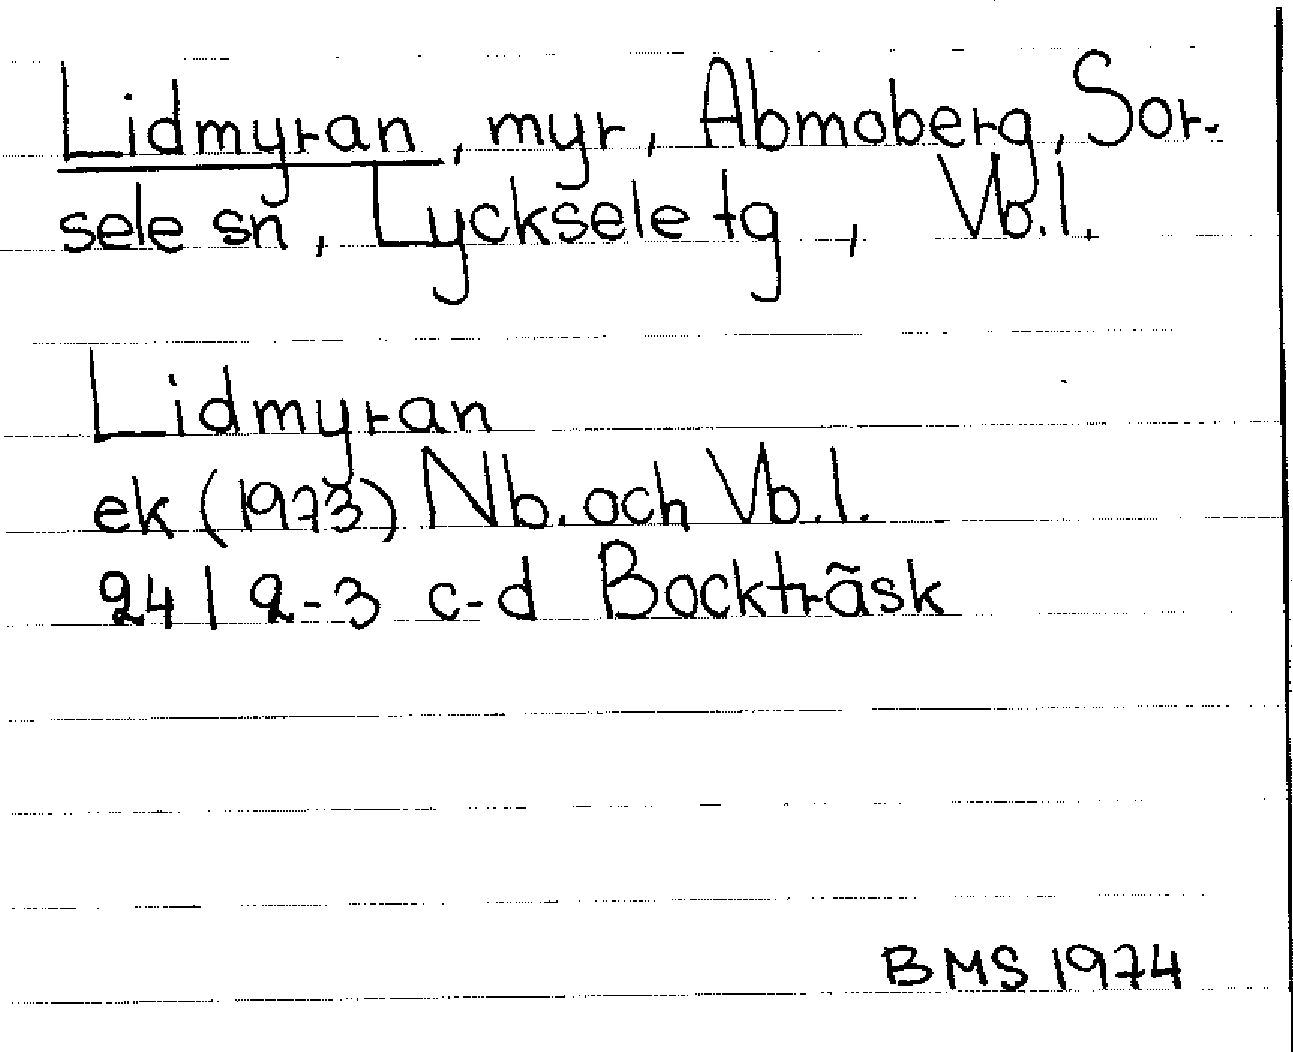 Lidmyran, myr, Abmoberg, Sor-
sele sn, Lycksele tg, Vb.l.
Lidmyran
ek (1973) Nb. och Vb.l.
24 I 2-3 c-d Bockträsk
BMS 1974